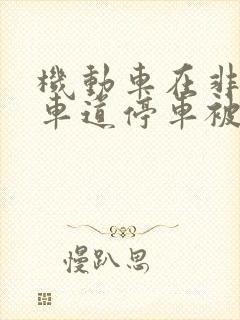 機動車在非
車道停車被
慢趴思